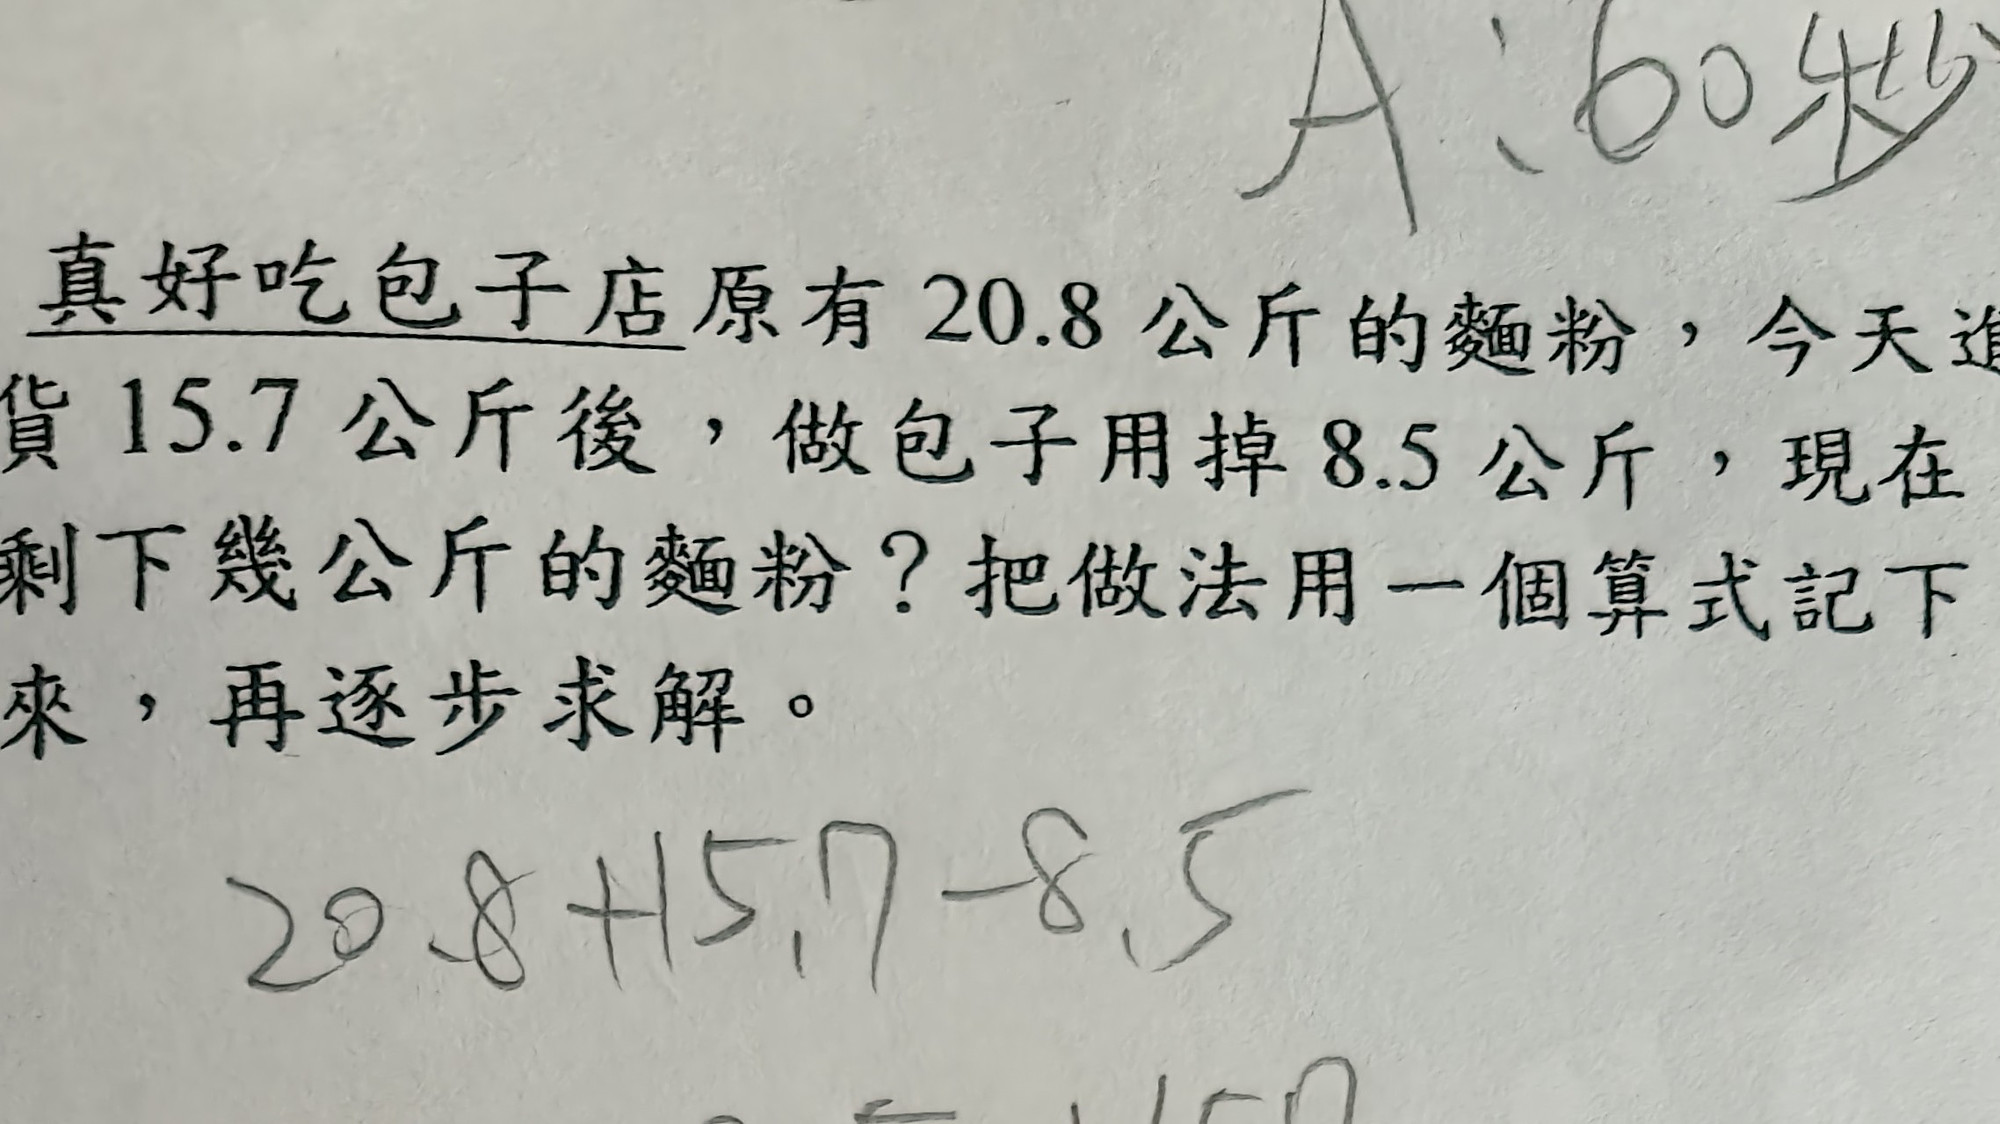 A：60秒
真好吃包子店原有 20.8 公斤的麵粉，今天進
貨 15.7 公斤後，做包子用掉 8.5 公斤，現在
剩下幾公斤的麵粉？把做法用一個算式記下
來，再逐步求解。
20.8+15.7-8.5